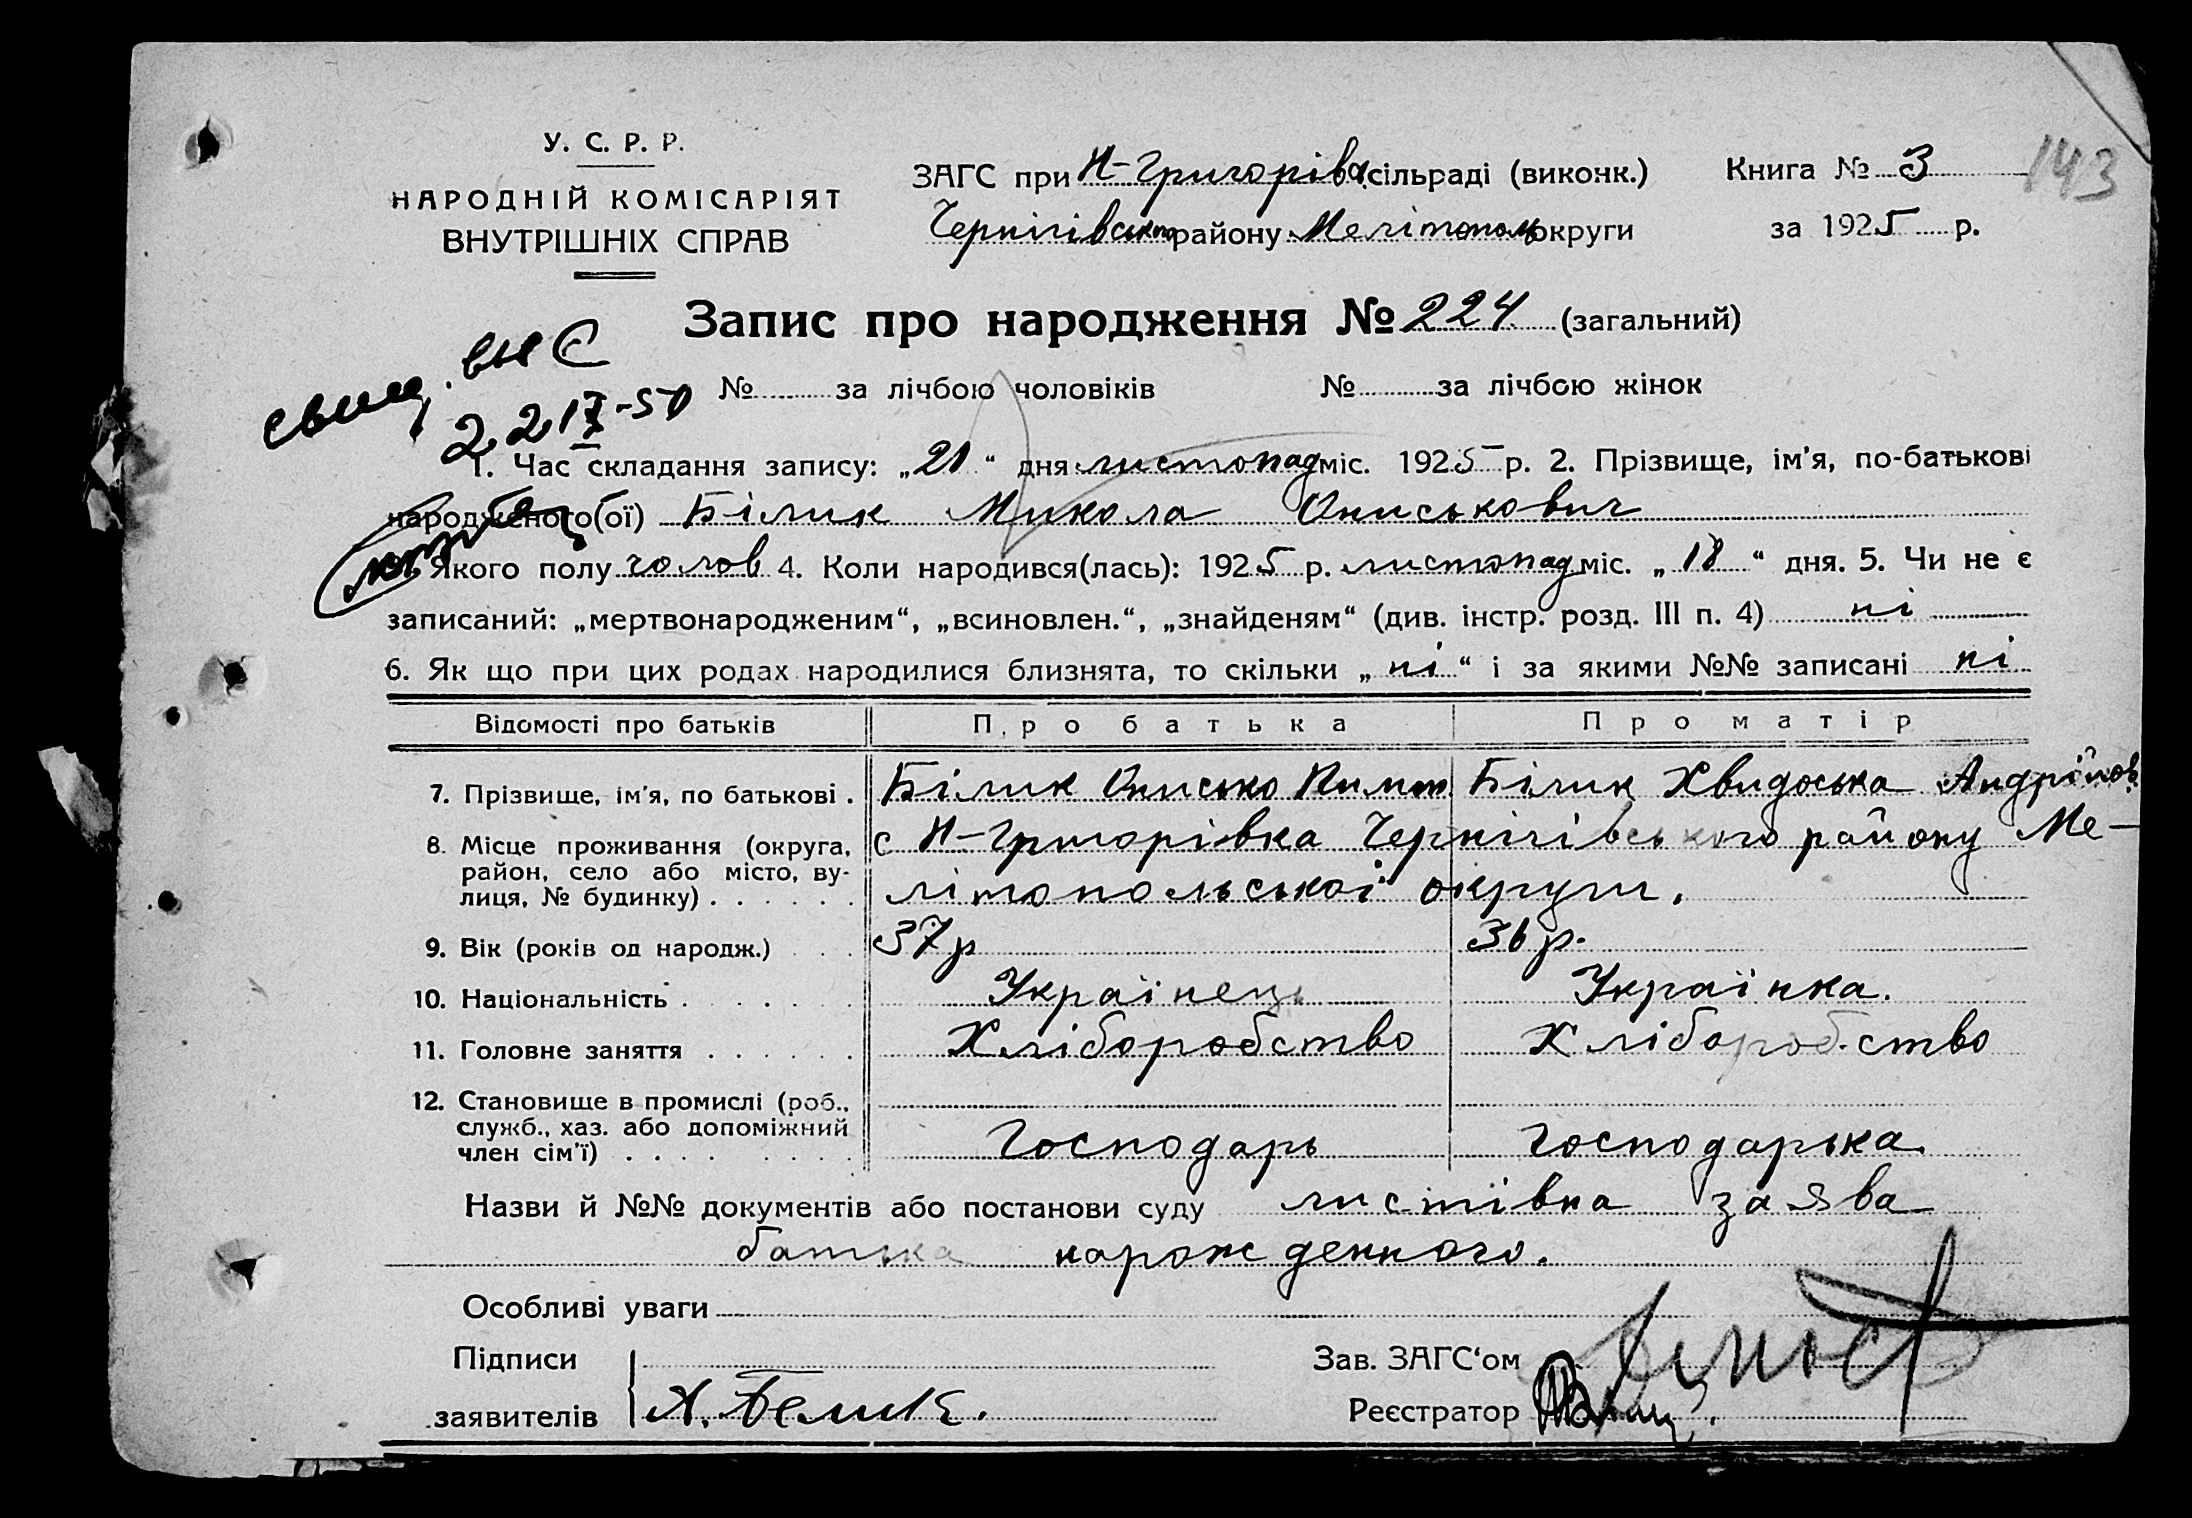 У. С. Р. Р.
НАРОДНІЙ КОМІСАРІЯТ
ВНУТРІШНІХ СПРАВ
ЗАГС при Н-Григорівск. сільраді (виконк.)
Чернігівського району Мелітополь округи
Книга № 3
за 1925 р.
143
Запис про народження № 224 (загальний)
свид. вы С
22 IX-50
№ за лічбою чоловіків № за лічбою жінок
1. Час складання запису: „21“ дня листопад міс. 1925 р. 2. Прізвище, ім’я, по-батькові
народженого(ої) Білик МиколаОниськович
Якого полу чолов 4. Коли народився(лась): 1925 р. листопад міс. „18“ дня. 5. Чи не є
записаний: „мертвонародженим“, „всиновлен.“, „знайденям“ (див. інстр. розд. III п. 4) ні
6. Як що при цих родах народилися близнята, то скільки „ні“ і за якими №№ записані ні
Відомості про батьків Про батька Про матір
7. Прізвище, ім’я, по батькові . Білик Онисько Пимон Білик Хвидоська Андріїов.
8. Місце проживання (округа, район, село або місто, вулиця, № будинку) . . . . . . с Н-Григорівка Чернігівського району Ме-
літопольської округи.
9. Вік (років од народж.) . . . 37 р 36 р.
10. Національність . . . . . . Українець Українка.
11. Головне заняття . . . . . . Хліборобство Хліборобство
12. Становище в промислі (роб., служб., хаз. або допоміжний член сім’ї) . . . . . . . . Господарь господарька
Назви й №№ документів або постанови суду листівна заява
батька народженного.
Особливі уваги
Підписи
заявителів А. Белик.
Зав. ЗАГС‘ом
Реєстратор